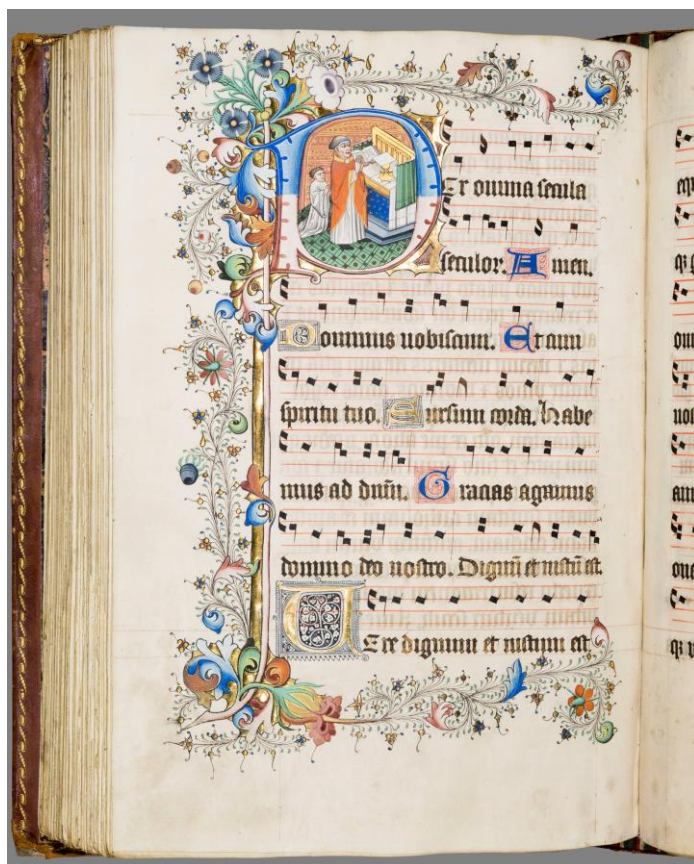 PEr omnia secula
seculor. Amen.
Dominus uobiscum. Et cum
spiritu tuo. Sursum corda. Habe
mus ad dnm̄. Gracias agamus
domino deo nostro. Dignū et iustū est.
UEre dignum et iustum est